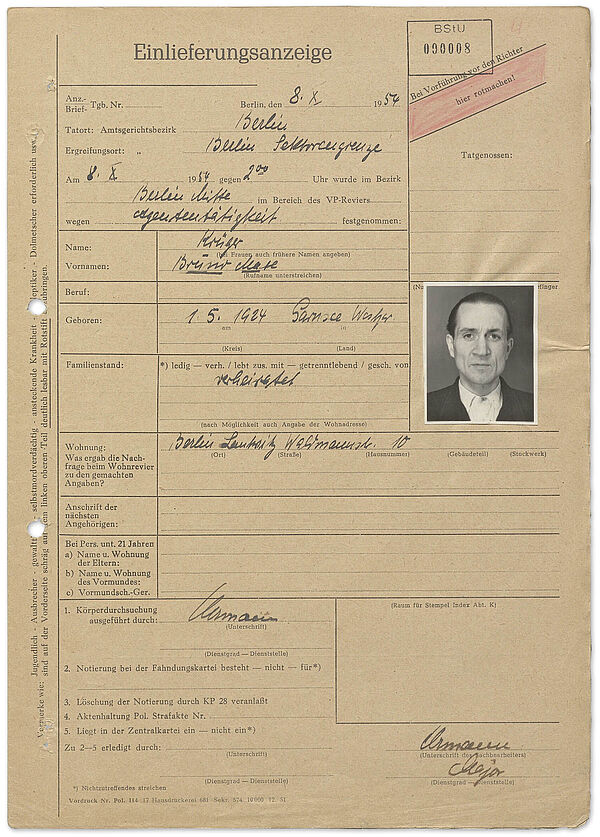 BStU
000008
Einlieferungsanzeige
Bei Vorführung vor den Richter
hier rotmachen!
Anz.-
Brief- Tgb. Nr. Berlin, den 8. X 1954
Tatort: Amtsgerichtsbezirk Berlin
Ergreifungsort: „ Berlin Sektorengrenze
Tatgenossen:
Am 8. X 1954 gegen 2⁰⁰ Uhr wurde im Bezirk
Berlin Mitte im Bereich des VP-Reviers
wegen Agententätigkeit festgenommen:
Name: Krüger
(bei Frauen auch frühere Namen angeben)
Vornamen: Bruno
(Rufname unterstreichen)
Beruf:
Geboren: 1. 5. 1924
am in
(Kreis) (Land)
Familienstand: *) ledig — verh. / lebt zus. mit — getrenntlebend / gesch. von
verheiratet
(nach Möglichkeit auch Angabe der Wohnadresse)
Wohnung: Berlin Lankwitz Waldmannstr. 10
(Ort) (Straße) (Hausnummer) (Gebäudeteil) (Stockwerk)
Was ergab die Nach-
frage beim Wohnrevier
zu den gemachten
Angaben?
Anschrift der
nächsten
Angehörigen:
Bei Pers. unt. 21 Jahren
a) Name u. Wohnung
der Eltern:
b) Name u. Wohnung
des Vormundes:
c) Vormundsch.-Ger.
1. Körperdurchsuchung
ausgeführt durch:
(Unterschrift)
(Dienstgrad — Dienststelle)
(Raum für Stempel Index Abt. K)
2. Notierung bei der Fahndungskartei besteht — nicht — für*)
3. Löschung der Notierung durch KP 28 veranlaßt
4. Aktenhaltung Pol. Strafakte Nr.
5. Liegt in der Zentralkartei ein — nicht ein*)
Zu 2—5 erledigt durch:
(Unterschrift)
(Dienstgrad — Dienststelle)
(Unterschrift des Sachbearbeiters)
Major
(Dienstgrad — Dienststelle)
*) Nichtzutreffendes streichen
Vordruck Nr. Pol. 114 17 Hausdruckerei 681 Sekr. 574 10000 12. 51
Vermerke wie: Jugendlich - Ausbrecher - selbstmordverdächtig - ansteckende Krankheit - Dolmetscher erforderlich usw.
sind auf der Vorderseite schräg linken oberen Teil deutlich lesbar mit Rotstift